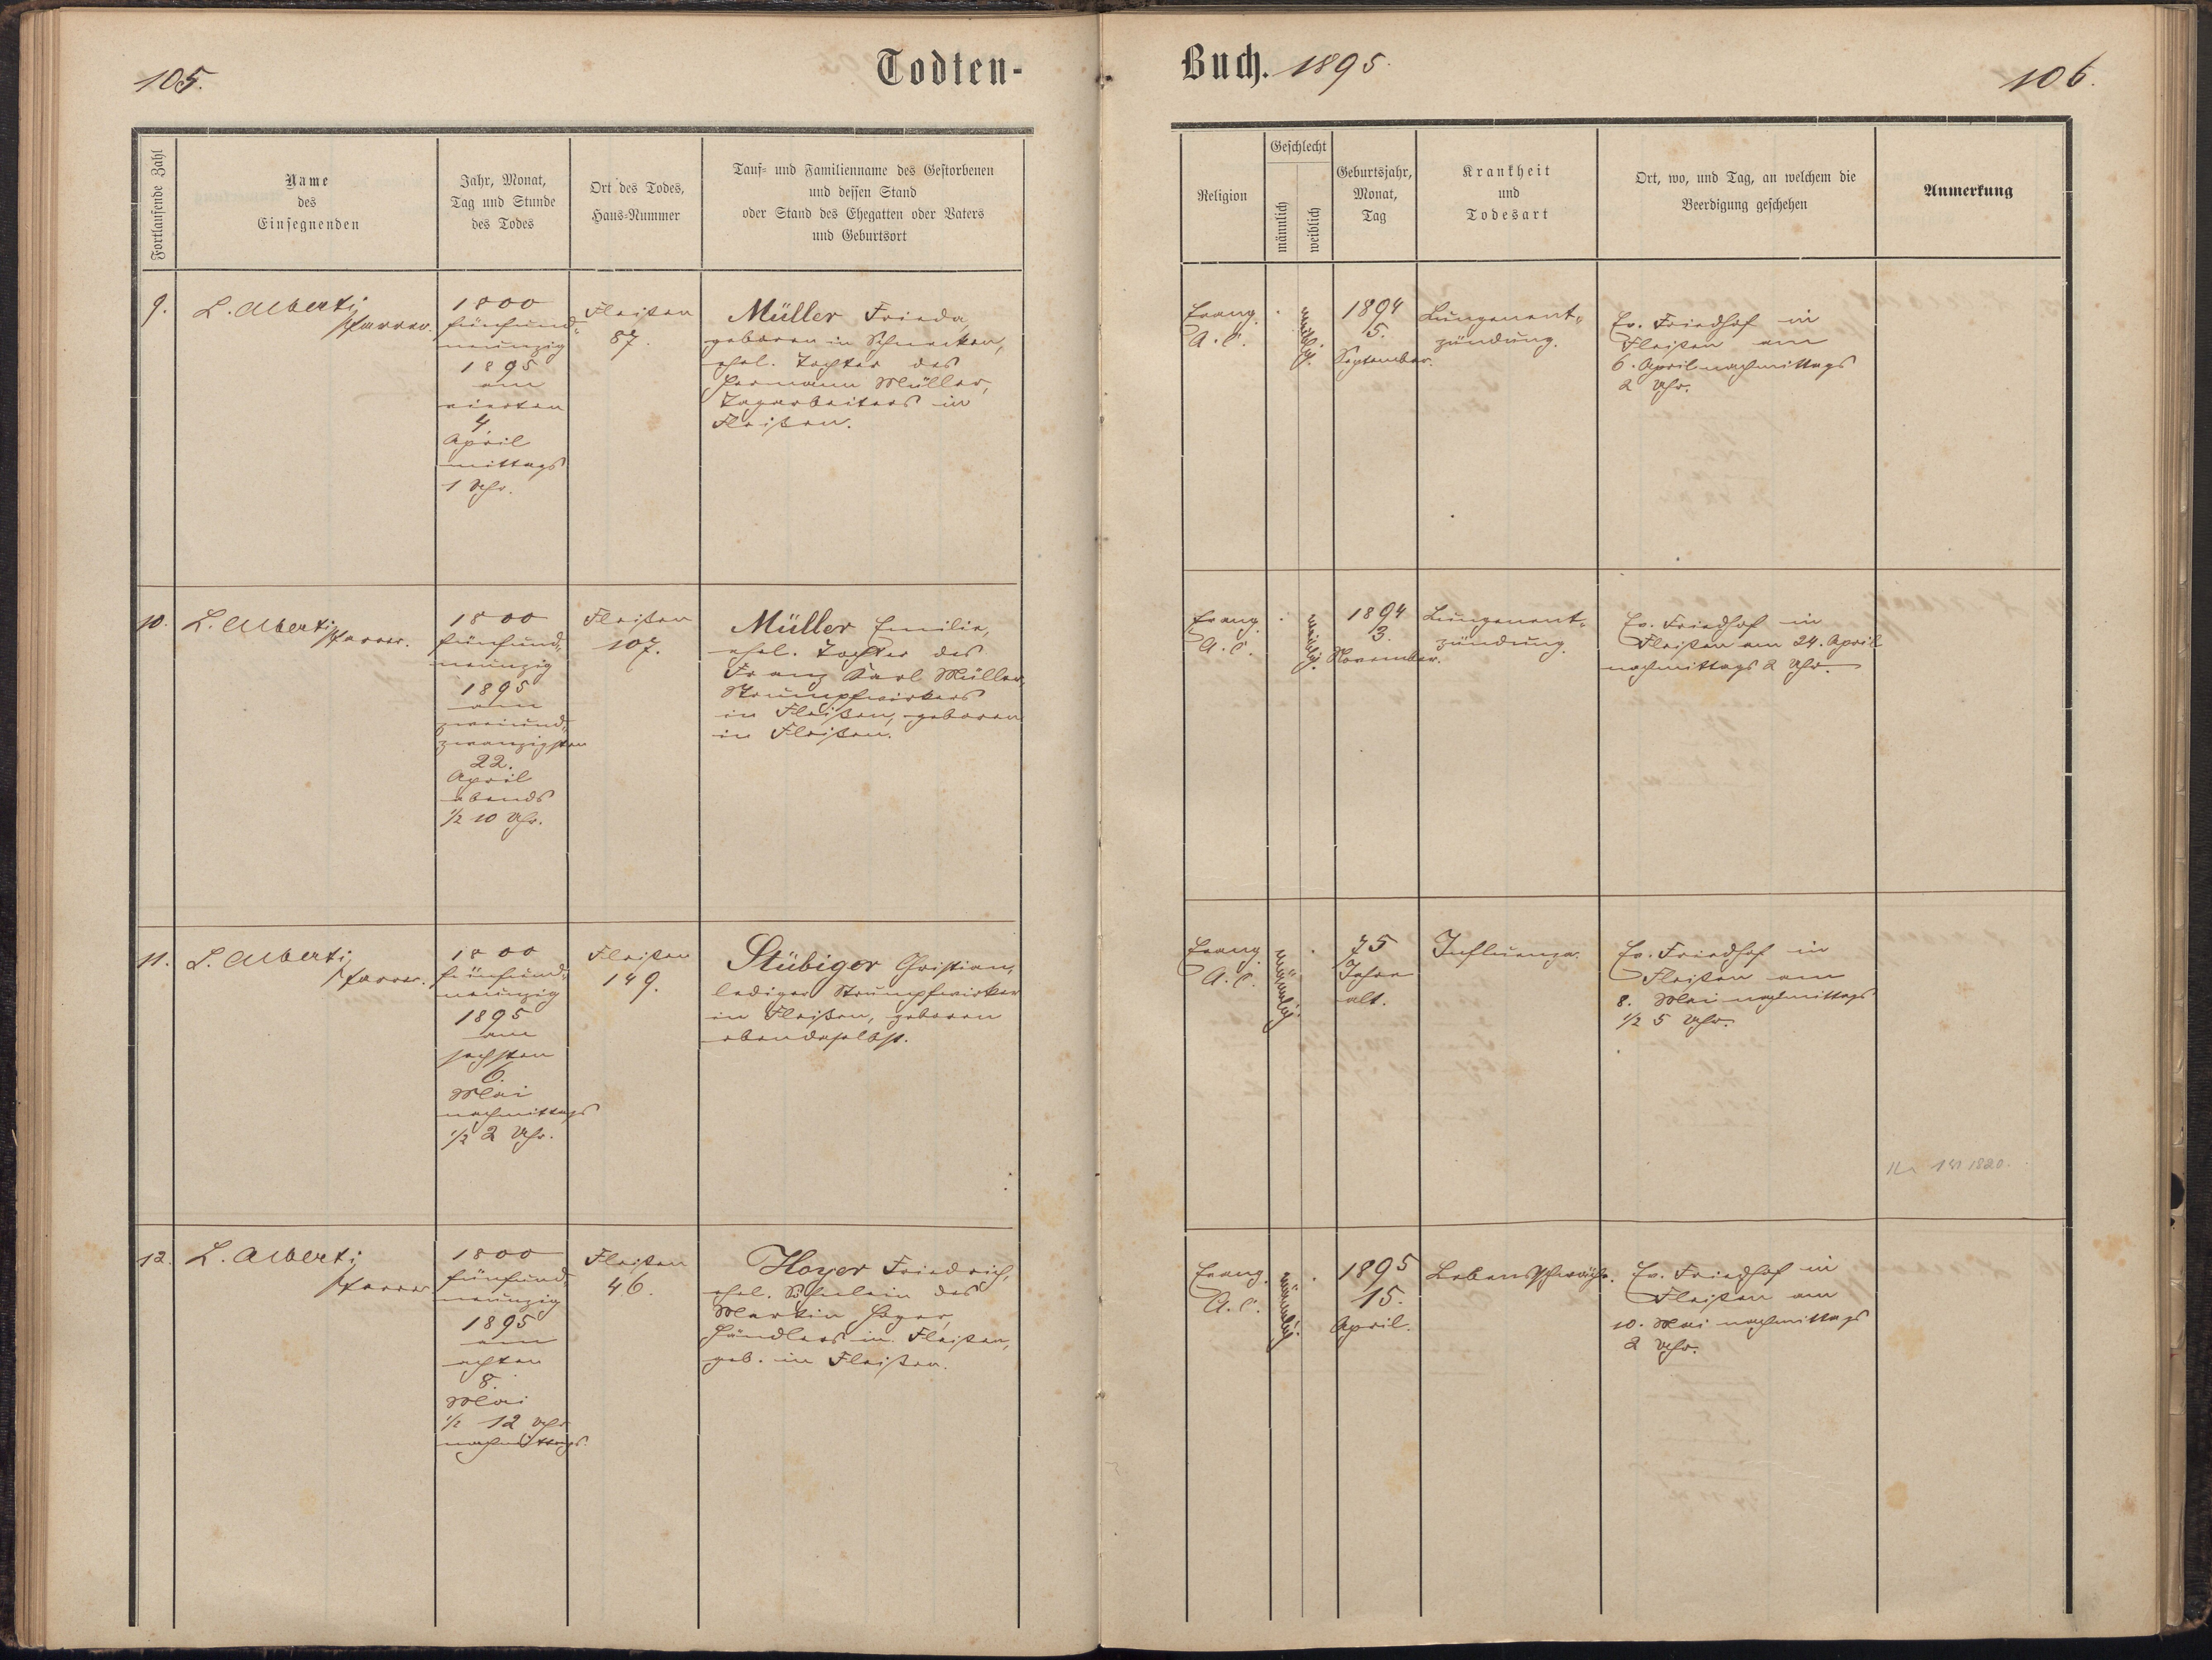 105.
Todten-
Fortlaufende Zahl
Name
des
Einsegnenden
Jahr, Monat,
Tag und Stunde
des Todes
Ort des Todes,
Haus-Nummer
Tauf- und Familienname des Gestorbenen
und dessen Stand
oder Stand des Ehegatten oder Vaters
und Geburtsort
9.
L. Alberti
Pfarrer.
1800
fünfund-
neunzig
1895
am
vierten
4.
April
mittags
1 Uhr.
Fleißen
87.
Müller Frieda,
geboren in
ehel. Tochter des
Hermann Müller,
Tagarbeiters in
Fleißen.
10.
L. Alberti
Pfarrer.
1800
fünfund-
neunzig
1895
am
zweiund-
zwanzigsten
22.
April
abends
1/2 10 Uhr.
Fleißen
107.
Müller Emilie,
ehel. Tochter des
Franz Karl Müller,
Strumpfwirkers
in Fleißen, geboren
in Fleißen.
11.
L. Alberti
Pfarrer.
1800
fünfund-
neunzig
1895
am
sechsten
6.
Mai
nachmittags
1/2 2 Uhr.
Fleißen
149.
Stübiger Christian,
lediger Strumpfwirker
in Fleißen, geboren
ebendaselbst.
12.
L. Alberti
Pfarrer
1800
fünfund-
neunzig
1895
am
achten
8.
Mai
1/2 12 Uhr
nachmittags.
Fleißen
46.
Hoyer Friedrich,
ehel. Söhnlein des
Martin Hoyer,
Händlers in Fleißen,
geb. in Fleißen.
Buch. 1895.
106.
Religion
Geschlecht
männlich
weiblich
Geburtsjahr,
Monat,
Tag
Krankheit
und
Todesart
Ort, wo, und Tag, an welchem die
Beerdigung geschehen
Anmerkung
Evang.
A. C.
weiblich.
1894
5.
September.
Lungenent-
zündung.
Ev. Friedhof in
Fleißen am
6. April nachmittags
2 Uhr.
Evang.
A. C.
weiblich.
1894
3.
November.
Lungenent-
zündung.
Ev. Friedhof in
Fleißen am 24. April
nachmittags 2 Uhr.
Evang.
A. C.
männlich.
75
Jahre
alt.
Influenza.
Ev. Friedhof in
Fleißen am
8. Mai nachmittags
1/2 5 Uhr.
1820.
Evang.
A. C.
männlich.
1895
15.
April.
Lebensschwäche.
Ev. Friedhof in
Fleißen am
10. Mai nachmittags
2 Uhr.